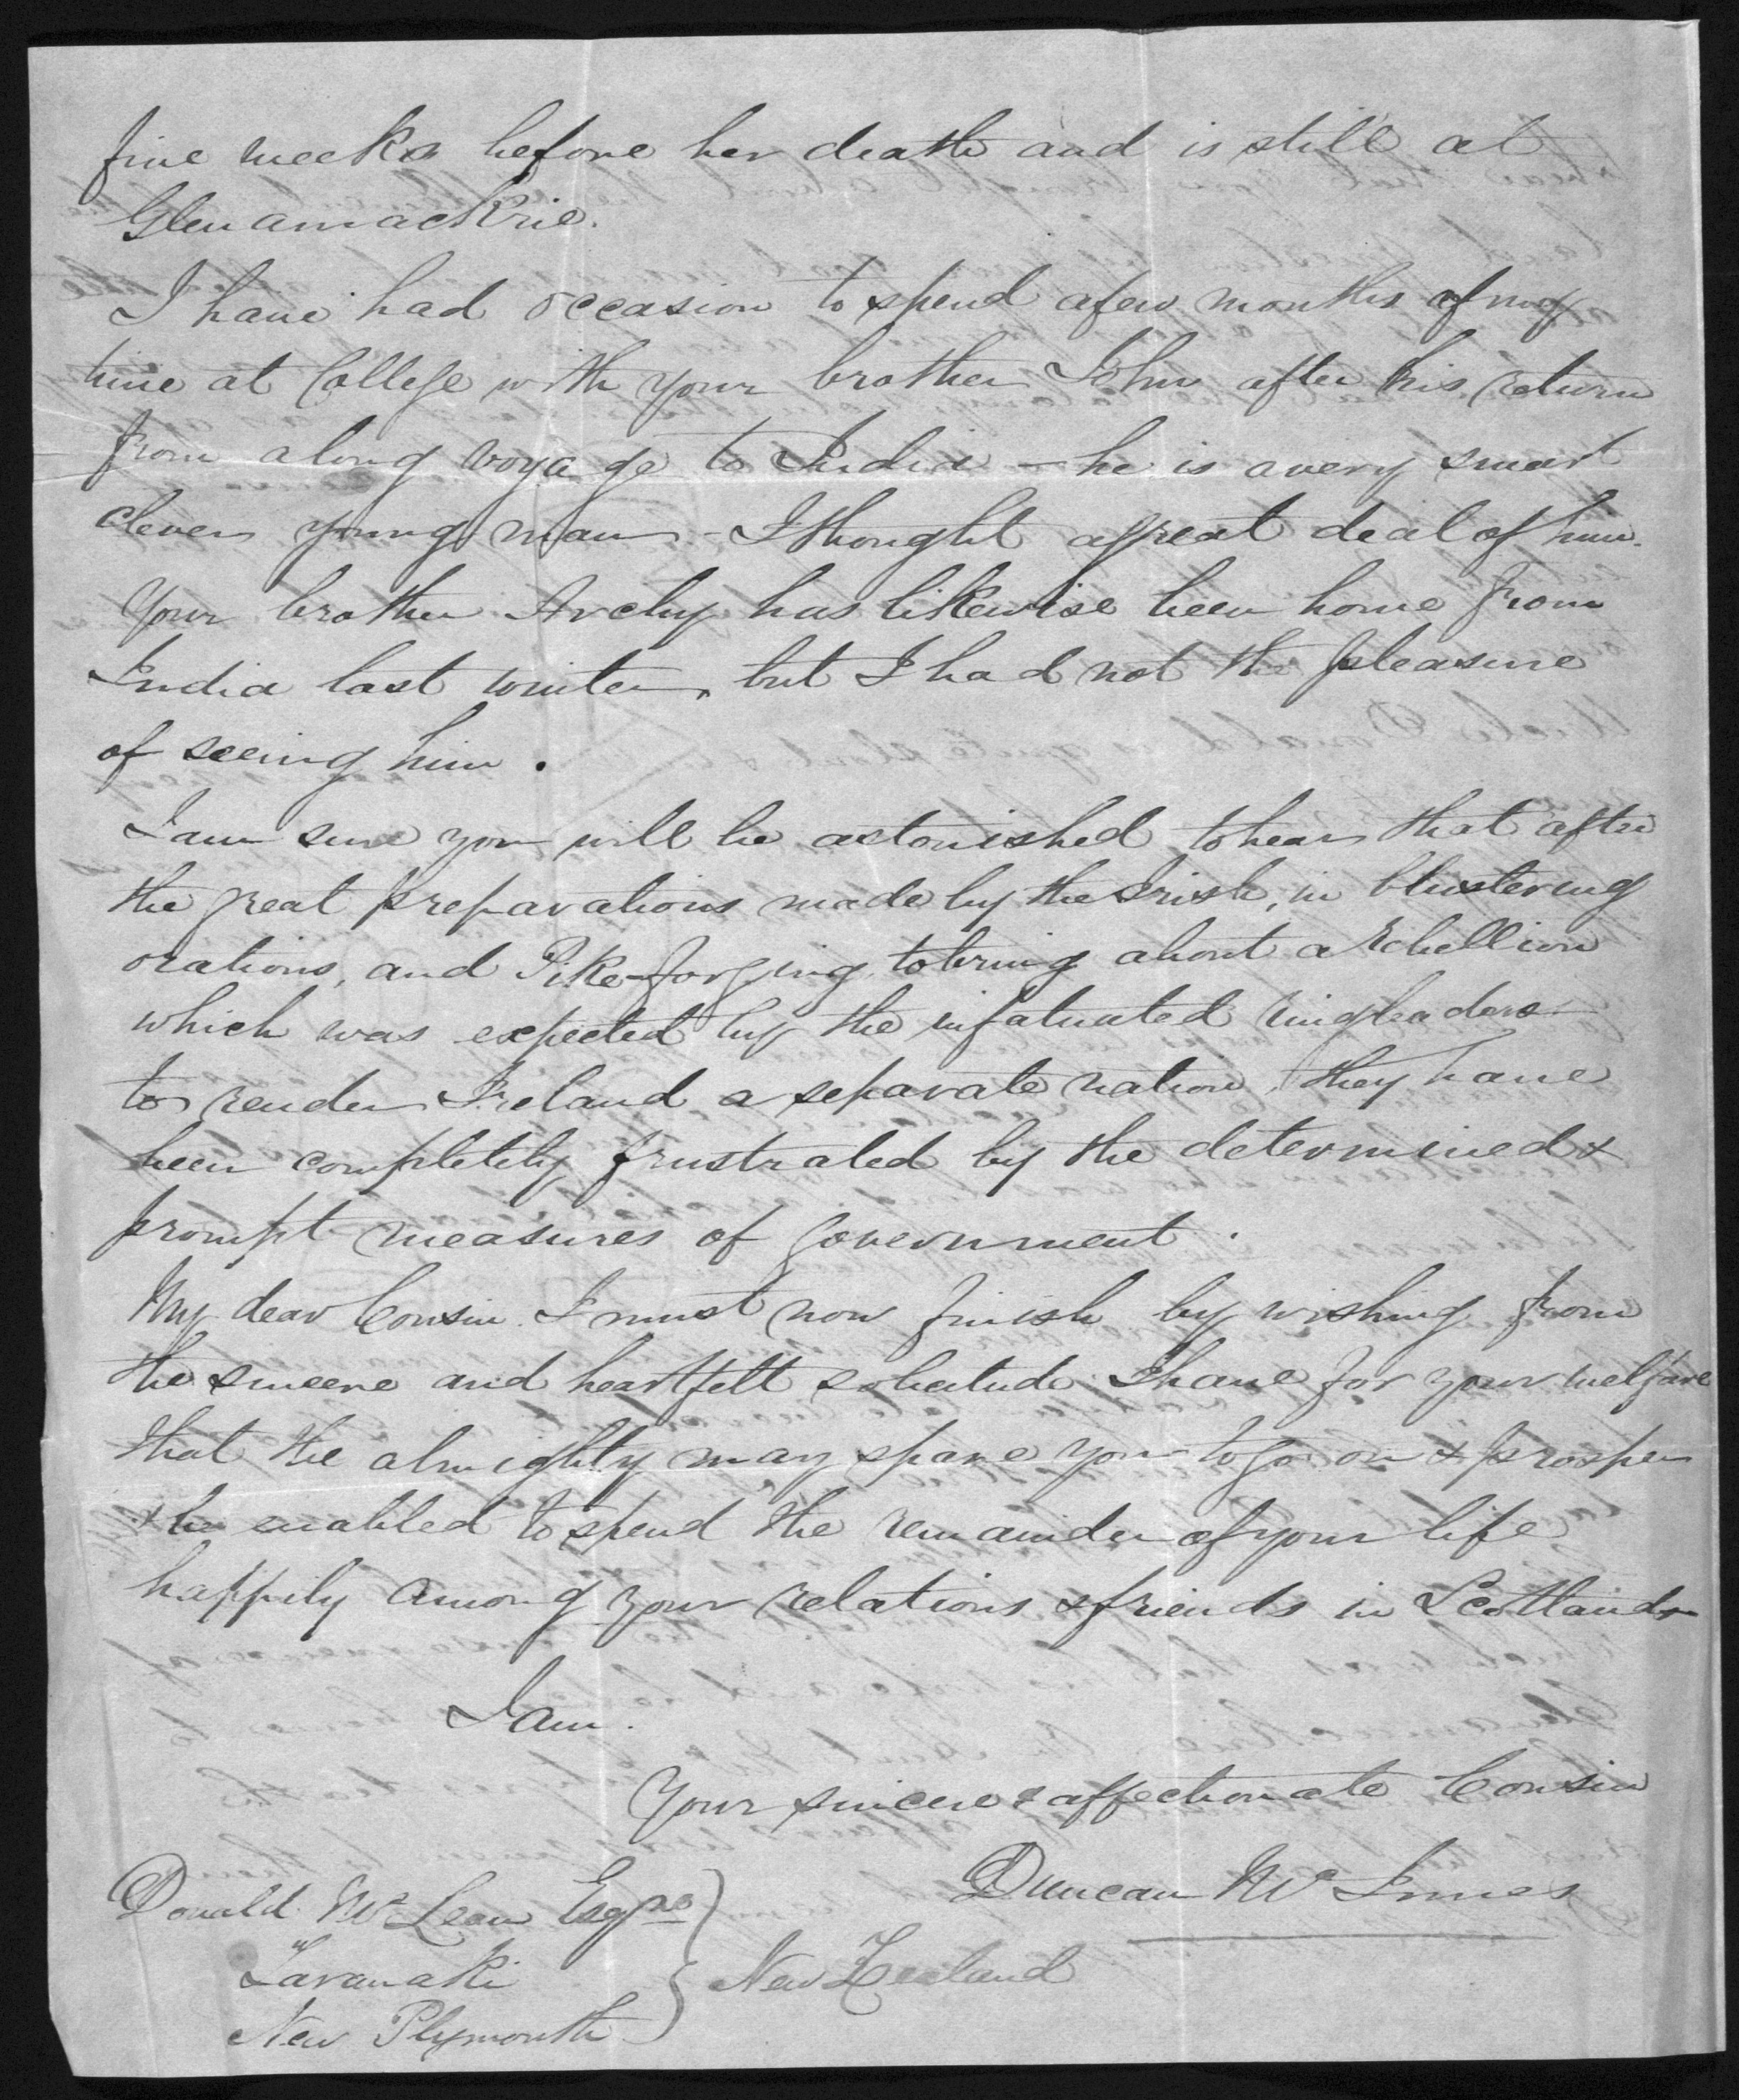 five weeks before her death and is still at
Glenamackrie.
I have had occasion to spend a few months of my
time at College with your brother John after his return
from a long voyage to India - he is a very smart
clever young man - I thought a great deal of him.
Your brother Archy has likewise been home from
India last winter, but I had not the pleasure
of seeing him.
I am sure you will be astonished to hear that after
the great preparations made by the Irish, in blustering
orations, and Pike-forging, to bring about a rebellion
which was expected by the infatuated ringleaders
to render Ireland a separate nation, they have
been completely frustrated by the determined &
prompt measures of government.
My dear Cousin. I must now finish by wishing from
the sincere and heartfelt solicitude I have for your welfare
that the almighty may spare you to go on & prosper
& be enabled to spend the remainder of your life
happily among your relations & friends in Scotland
I am.
Your sincere & affectionate Cousin
Duncan Mc Innes
Donald Mc Lean Esqre
Taranaki
New Zealand
New Plymouth